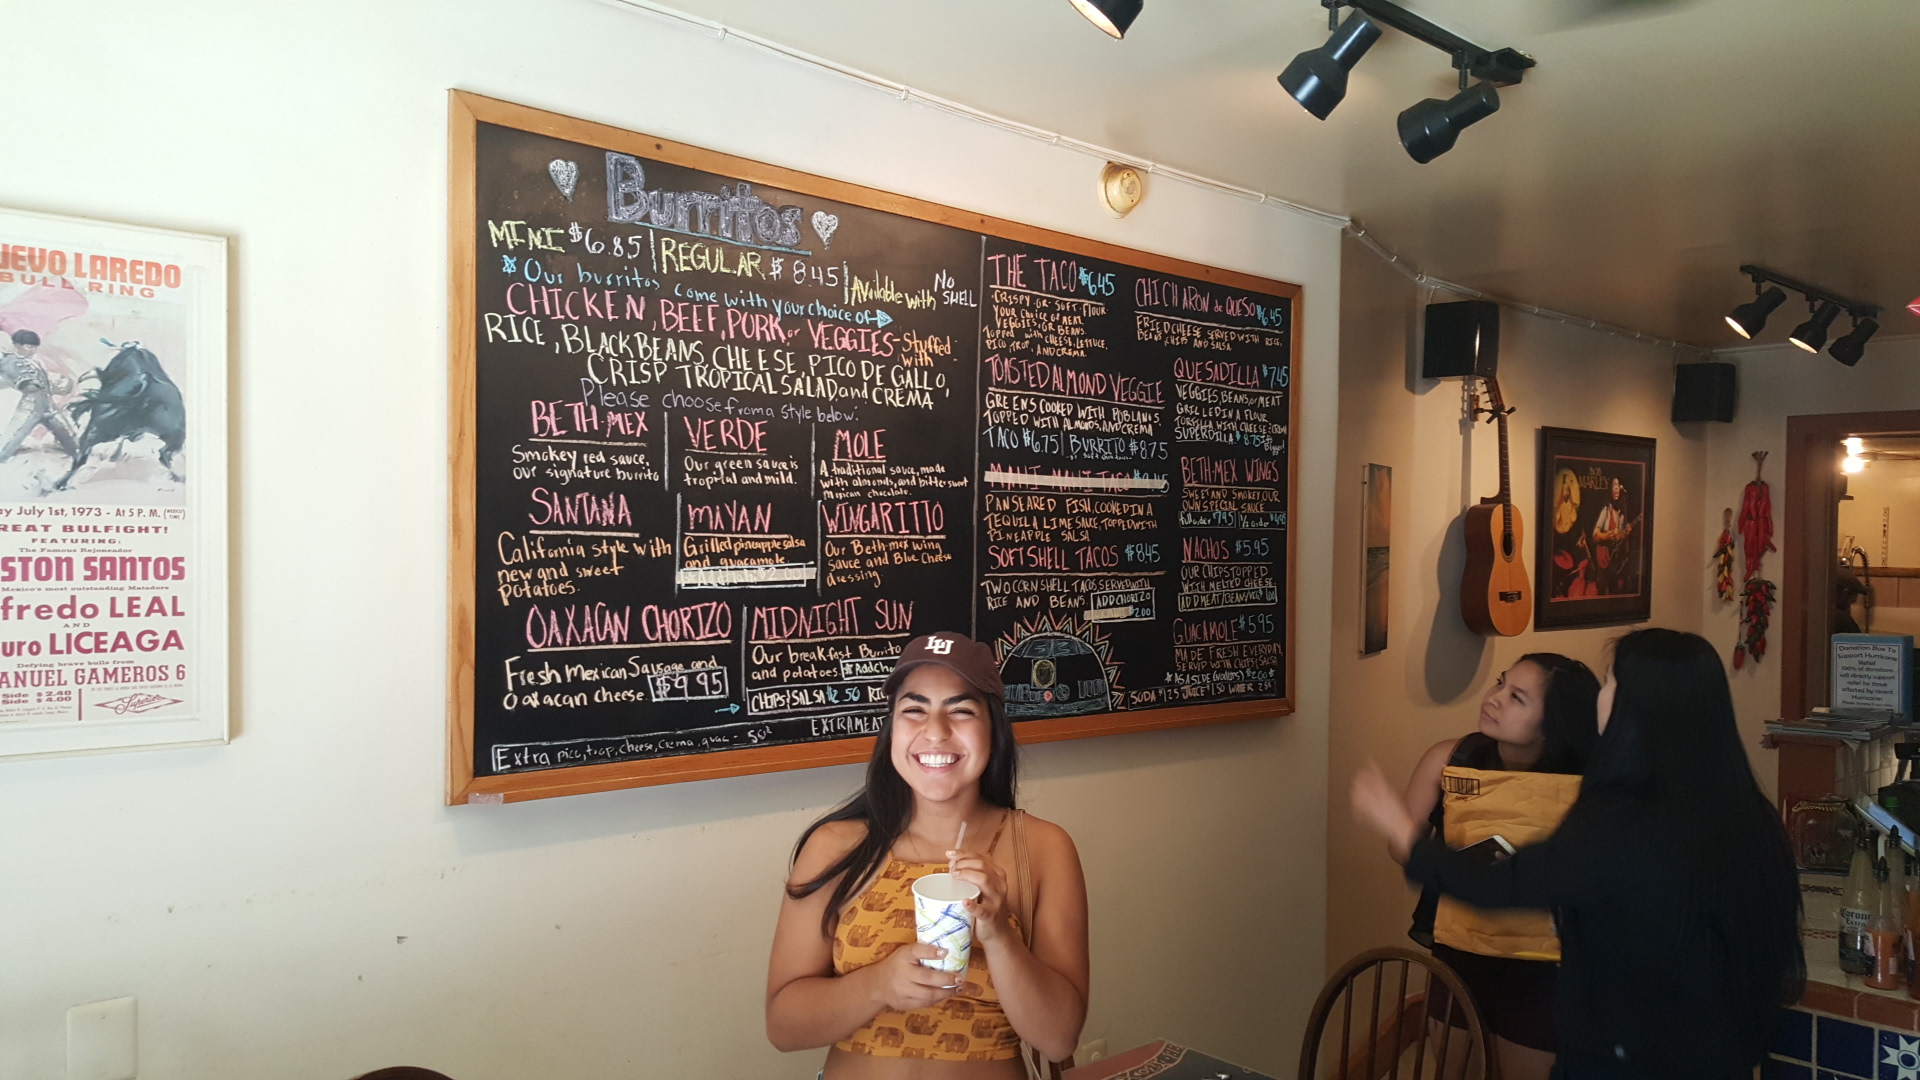 UEVO LAREDO
BULL RING
ay July 1st, 1973 - At 5 P. M. (MEXICO TIME)
REAT BULFIGHT!
FEATURING:
The Famous Rejoneador
STON SANTOS
Mexico's most outstanding Matadors
fredo LEAL
AND
uro LICEAGA
Defying brave bulls from
ANUEL GAMEROS 6
Side $ 2.40
Side $ 4.00
Superior
Burritos
MINI $6.85 REGULAR $8.45 Available with NO SHELL
Our burritos come with your choice of
CHICKEN, BEEF, PORK, or VEGGIES - Stuffed with
RICE, BLACK BEANS, CHEESE, PICO DE GALLO,
CRISP TROPICAL SALAD, and CREMA
Please choose from a style below:
BETH-MEX
Smokey red sauce,
our signature burrito
VERDE
Our green sauce is
tropical and mild.
MOLE
A traditional sauce, made
with almonds, and bittersweet
Mexican chocolate.
SANTANA
California style with
new and sweet
potatoes.
MAYAN
Grilled pineapple salsa
and guacamole
WINGARITTO
Our Beth-mex wing
sauce and Blue Cheese
dressing
OAXACAN CHORIZO
Fresh Mexican Sausage and
Oaxacan cheese. $9.95
MIDNIGHT SUN
Our breakfast Burrito
and potatoes. Add Cho
CHIPS & SALSA $2.50 RIC
Extra pico, trop, cheese, crema, guac - 50¢
EXTRA MEAT
THE TACO $6.45
CRISPY OR SOFT FLOUR
YOUR CHOICE OF MEAT,
VEGGIES, OR BEANS.
Topped with CHEESE, LETTUCE,
PICO, TROP, AND CREMA.
TOASTED ALMOND VEGGIE
GREENS COOKED WITH POBLANOS
TOPPED WITH ALMONDS, AND CREMA
TACO $6.75 BURRITO $8.75
MAHI-MAHI TACO
PAN SEARED FISH, COOKED IN A
TEQUILA LIME SAUCE, TOPPED WITH
PINEAPPLE SALSA
SOFT SHELL TACOS $8.45
TWO CORN SHELL TACOS SERVED WITH
RICE AND BEANS. ADD CHORIZO
2.00
CHICHARON de QUESO $6.45
FRIED CHEESE SERVED WITH RICE,
BEANS, CHIPS AND SALSA
QUESADILLA $7.45
VEGGIES, BEANS, or MEAT
GRILLED IN A FLOUR
TORTILLA WITH CHEESE + CREMA
SUPERDILLA $8.75
BETH-MEX WINGS
SWEET AND SMOKEY, OUR
OWN SPECIAL SAUCE
full order $7.95 1/2 order $4.95
NACHOS $5.95
OUR CHIPS TOPPED
WITH MELTED CHEESE
ADD MEAT/BEANS/VEG
GUACAMOLE $5.95
MADE FRESH EVERYDAY,
SERVED WITH CHIPS & SALSA
AS A SIDE $2.00
SODA $1.25 JUICE $1.50 WATER
LU
BOB MARLEY
Donation Box To
Support Hurricane
Relief
100% of donations
will directly support
relief for those
affected by recent
Hurricanes
Corona
Extra